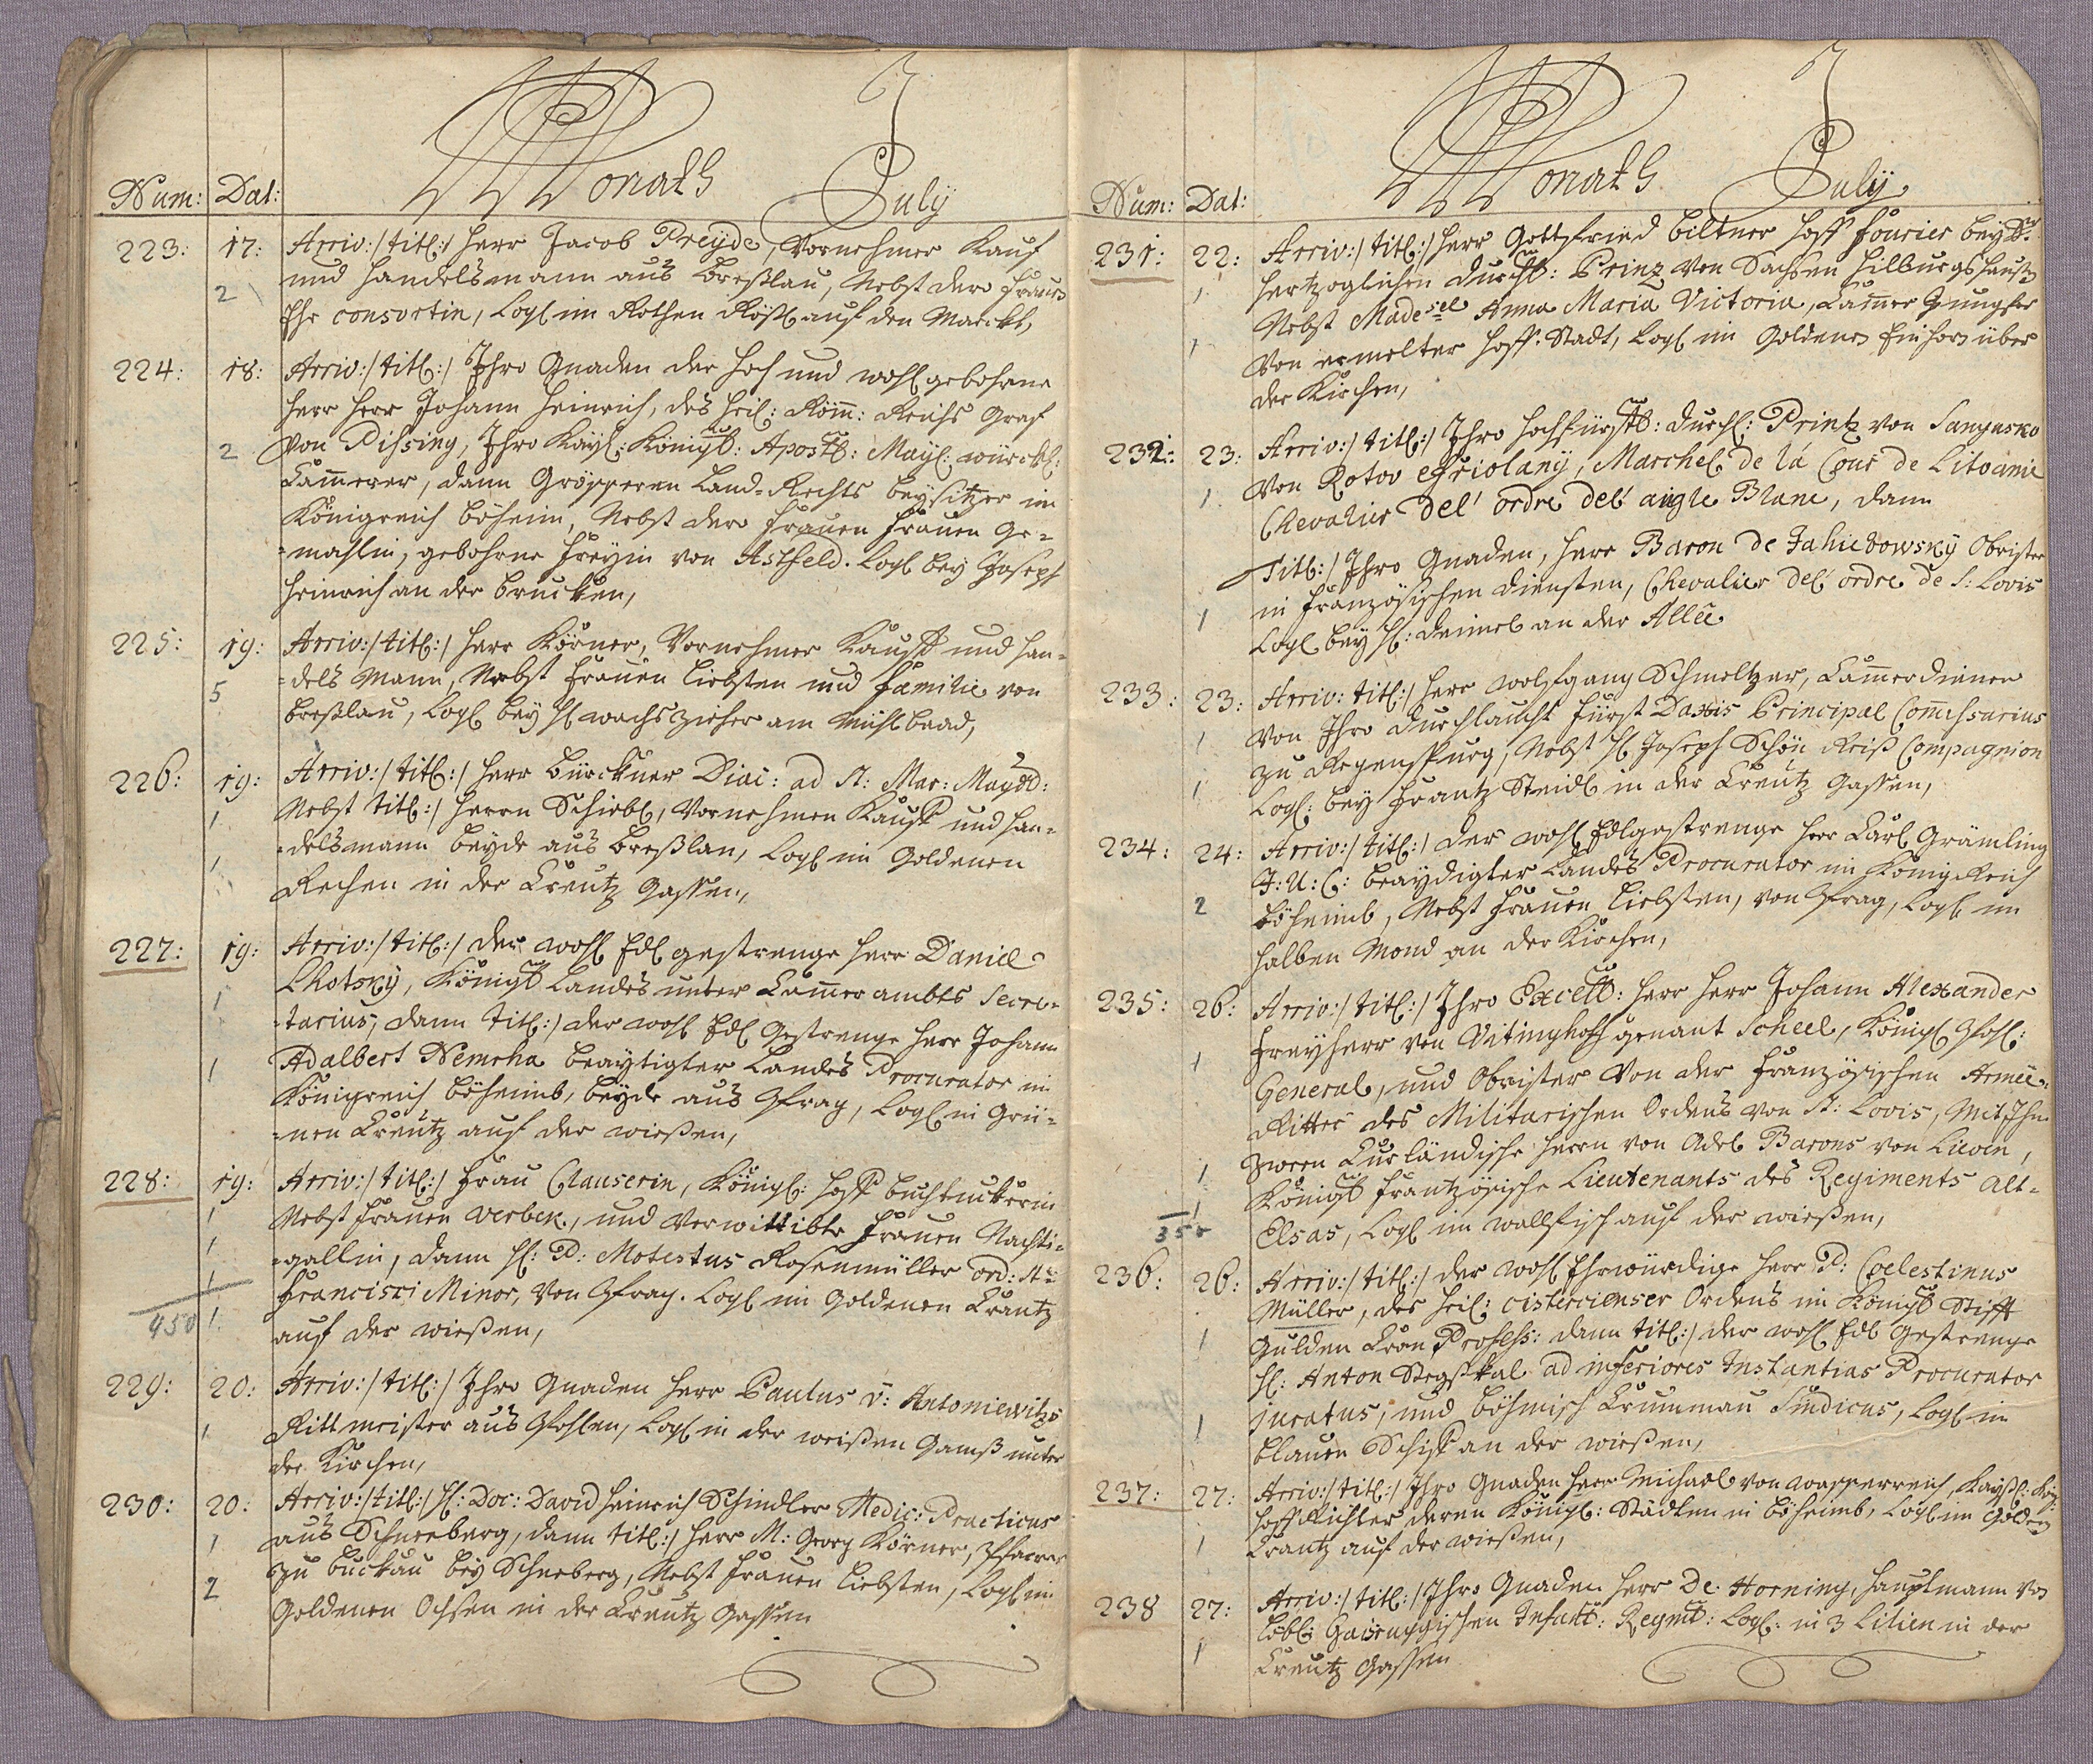 Monath July
Num: Dat:
223: 17: Arriv:/ titl:/ Herr Jacob Preyde, Vornehmer Kauf
und Handelsmann aus Breßlau, Nebst dero Frauen
2
Ehe consortin, Log: im Rothen Rößl auf den Marckt,
224: 18: Arriv:/ titl:/ Ihro Gnaden der Hoch und wohl gebohrne
Herr Herr Johann Heinrich, des heil: Röm: Reichs Graf
2 von Pissing, Ihro Kayl: Königl: Apostl: Mayl: würckl:
Cammerer, dann Grösseren Land-Rechts beysitzer im
Königreich Böheim, Nebst dero Frauen Frauen Ge-
-mahlin, gebohrne Freyin von Astfeld. Logl bey Joseph
Heinrich an der brucken,
225: 19: Arriv:/ titl:/ Herr Körner, Vornehmer Kauff und Han-
5 -dels Mann, Nebst Frauen Liebsten und Familie von
Breßlau, Logl bey H: wachszieher am Mühlbaad,
226: 19: Arriv:/ titl:/ Herr Bürckner Diac: ad St: Mar: Magd:
1 Nebst titl:/ Herrn Schiebl, Vornehmen Kauff und Han-
1 -delsmann beyde aus Breßlau, Logl im Goldenen
Rechen in der Creutz Gassen,
227: 19: Arriv:/ titl:/ der wohl Edl gestrenge Herr Daniel
1 Lhotsky, Königl Landes unter Cammer ambts Secre-
-tarius, dann titl:/ der wohl Edl Gestrenge Herr Johann
1 Adalbert Nemcha beaytigter Landes Procurator im
Königreich Böheimb, beyde aus Prag, Logl in Grü-
-nen Creutz auf der wießen,
228: 19: Arriv:/ titl:/ Frau Clauserin, Königl: Hoff buchtruckerin
1 Nebst Frauen verbek, und Verwittibte Frauen Nachti-
1 -gallin, dann H: P: Motestus Rosenmüller ord: Sti
1 Francisci Minor, von Prag. Logl im Goldenen Crantz
450 1 auf der wießen,
229: 20: Arriv:/ titl:/ Ihro Gnaden Herr Paulus v: Antoniewitz
1 Rittmeister aus Pohlen, Logl in der weißen Gamß unter
der Kirchen,
230: 20: Arriv:/ titl:/ H: Doc: David Heinrich Schindler Medic: Practicus
1 aus Schneeberg, dann titl:/ Herr M: Georg Körner, Pfarrer
2 zu Buckau bey Schneberg, Nebst Frauen Liebsten, Logl im
Goldenen Ochsen in der Creutz Gassen
Monath July
Num: Dat:
231: 22: Arriv:/ titl:/ Herr Gottfried Biltner Hoff Fourier bey Sr
1 Hertzoglichen Durchl: Prinz von Sachsen Hilburgshausen
Nebst Madesel Anna Maria Victoria, Cammer Jungfer
1 Von ermelter Hoff-Stadt, Logl im Goldenen Einhorn über
der Kirchen,
232: 23: Arriv:/ titl:/ Ihro Hochfürstl: Durchl: Printz von Sangusko
1 Von Kotov Griolany, Marchel de la Cour de Litvanie
Chevalier Del' ordre Del' aigle Blanc, dann
Titl:/ Ihro Gnaden, Herr Baron de Zahiebowsky Obrister
in Französischen Diensten, Chevalier del' ordre de S: Lovis
1 Logl bey H: Deimel an der Allée
233: 23: Arriv: titl:/ Herr Wolfgang Schmeltzer, Cammerdiener
1 von Ihro Durchlaucht Fürst Daxis Principal Commissarius
zu Regenspurg, Nebst H: Joseph Schön Reiß Compagnion
1 Logl: bey Frantz Steidl in der Creutz Gassen,
234: 24: Arriv:/ titl:/ der wohl Edlgestrenge Herr Carl Grämling
J: U: C: beaydigter Landes Procurator im König-Reich
2 Böheimb, Nebst Frauen Liebsten, von Prag, Logl im
halben Mond an der Kirchen,
235: 26: Arriv:/ titl:/ Ihro Excell: Herr Herr Johann Alexander
1 Freyherr von Vitinghoff genant Scheel, Königl Pohl:
General, und Obrister von der Französischen Armée
Ritter des Militarischen Ordens von St: Lovis, Mit Ihm
1 Zween Curländische Herrn von Adel Barons von Lieven,
1 Königl Frantzösische Lieutenants des Regiments Alt-
355 Elsas, Logl im wallfisch auf der wießen,
236: 26: Arriv:/ titl:/ der wohl Ehrwürdige Herr P: Coelestinus
Müller, des heil: cistercienser Ordens im Königl Stifft
1 Gulden Cron Profess: dann titl:/ der wohl Edl Gestrenge
H: Anton Stegskal ad inferiores Instantias Procurator
1 juratus, und böhmisch Crummau Sindicus, Logl in
blauen Schiff an der wießen,
237: 27: Arriv:/ titl:/ Ihro Gnaden Herr Michael von wasserreich, Kayßl: Kög:
Hoff Richter deren Königl: Städten in Böheimb, Logl im Golden
1 Crantz auf der wießen,
238 27: Arriv:/ titl:/ Ihro Gnaden Herr De Horning, Hauptmann von
Löbl: Gaisruggischen Infant: Regmt: Logl: in 3 Lilien in der
1 Creutz Gassen